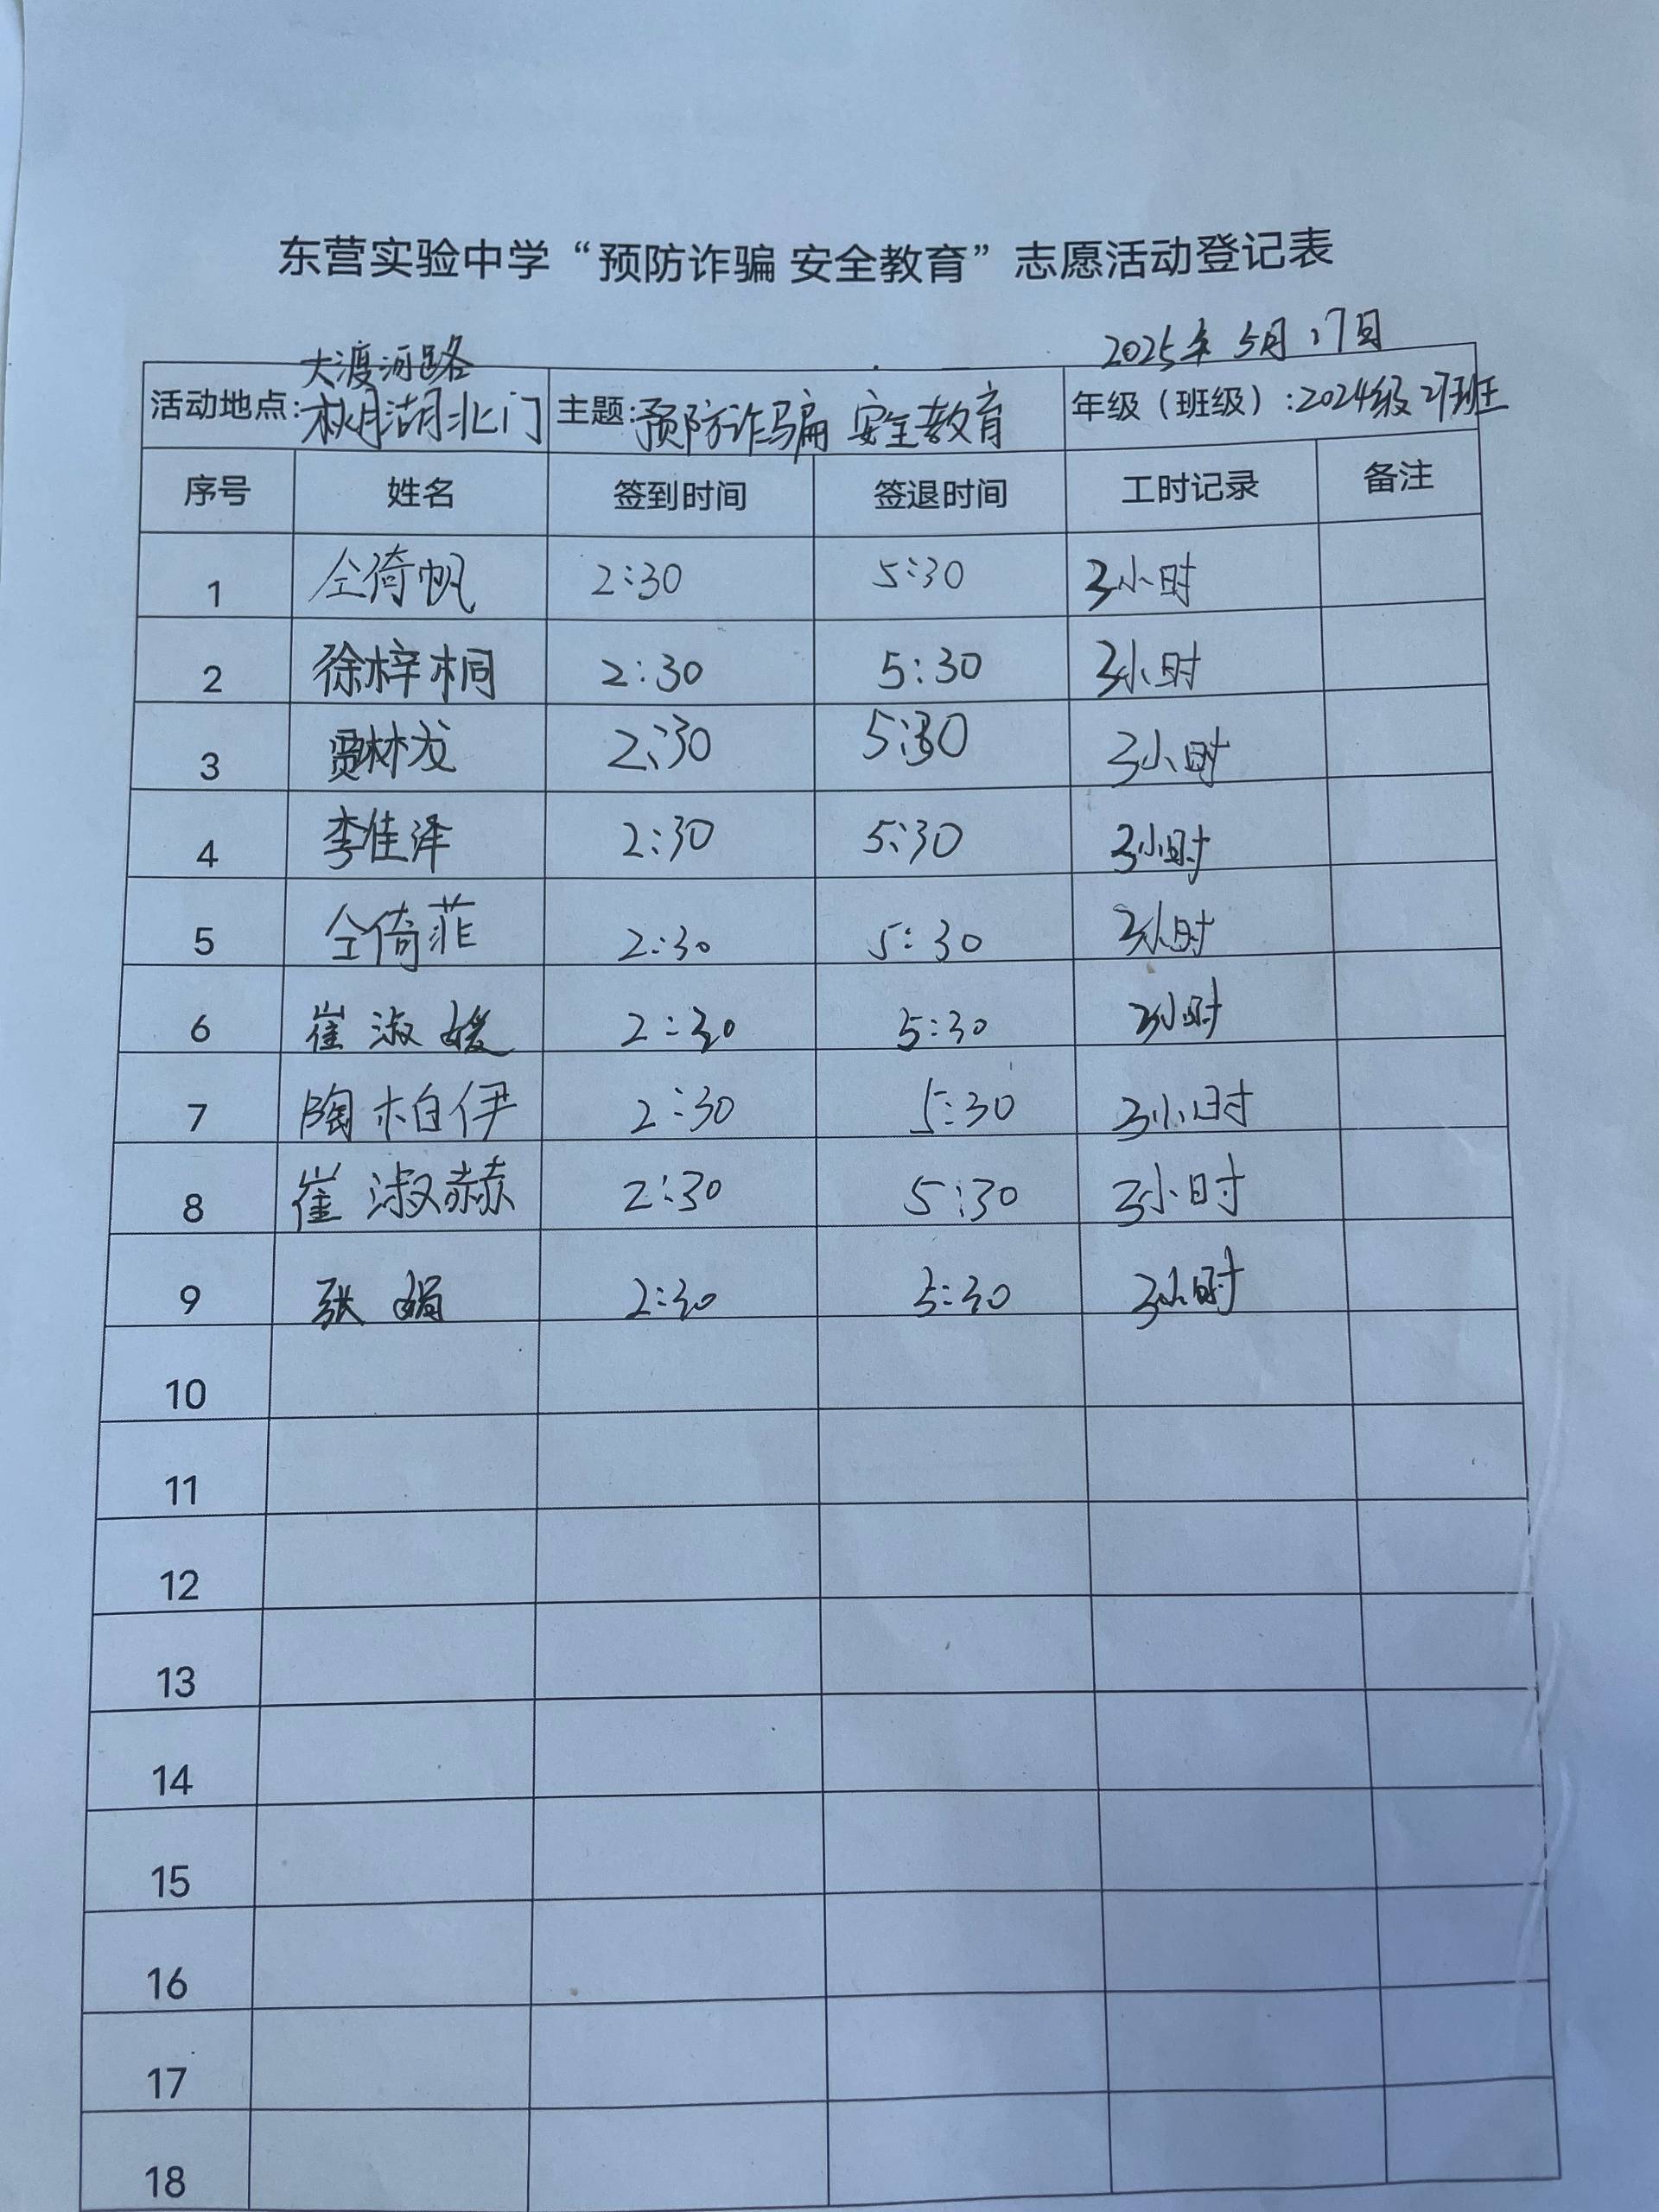 东营实验中学“预防诈骗 安全教育”志愿活动登记表
2025年5月17日
大渡河路
活动地点:秋月湖北门 主题:预防诈骗 安全教育 年级（班级）:2024级27班
序号 姓名 签到时间 签退时间 工时记录 备注
1 仝倚帆 2:30 5:30 3小时
2 徐梓桐 2:30 5:30 3小时
3 2:30 5:30 3小时
4 李佳泽 2:30 5:30 3小时
5 仝倚菲 2:30 5:30 3小时
6 崔淑媛 2:30 5:30 3小时
7 陶柏伊 2:30 5:30 3小时
8 崔淑赫 2:30 5:30 3小时
9 张娟 2:30 5:30 3小时
10
11
12
13
14
15
16
17
18